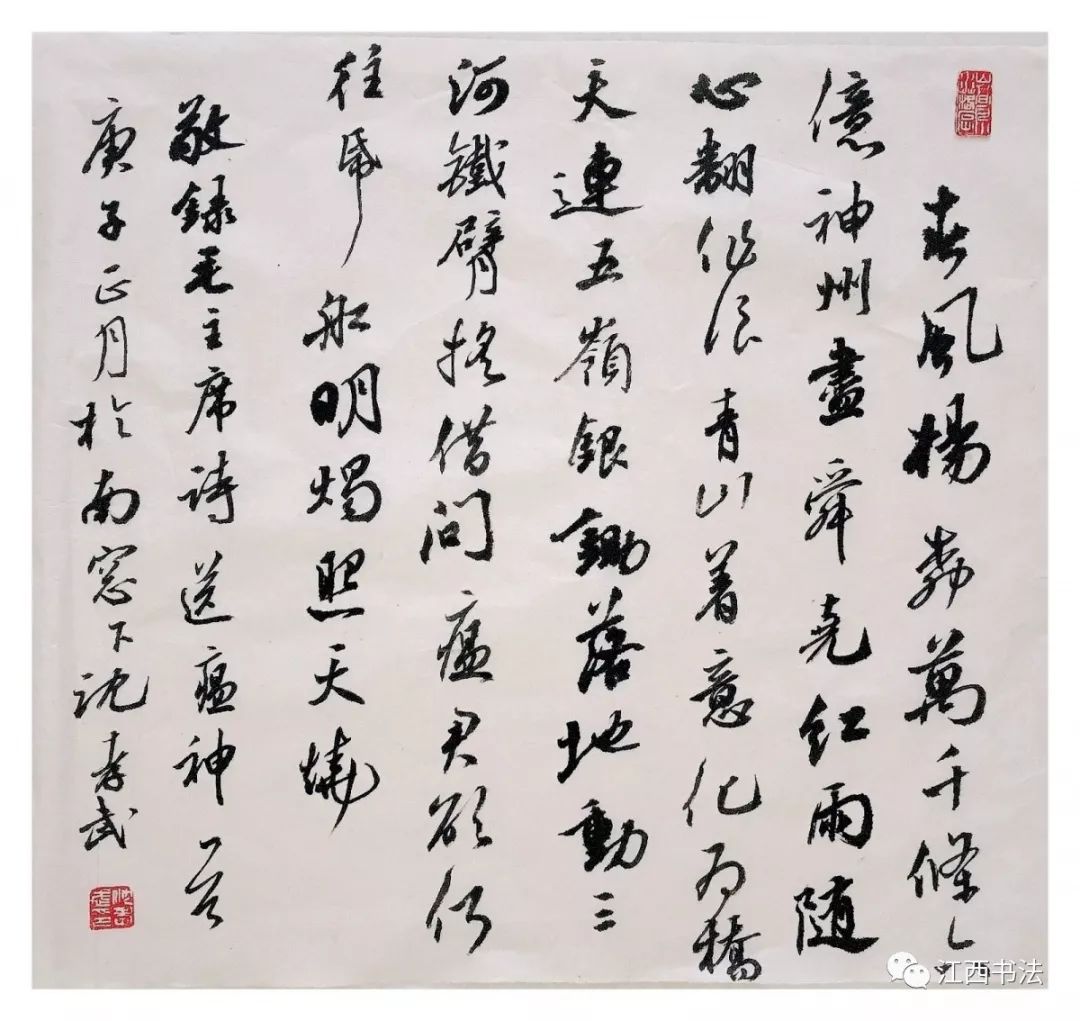 春風楊柳萬千條六
億神州盡舜堯紅雨隨
心翻作浪青山着意化為橋
天連五嶺銀鋤落地動三
河鐵臂搖借問瘟君欲何
往帋船明燭照天燒
敬録毛主席詩送瘟神一首
庚子正月於南窓下沈孝武
江西书法